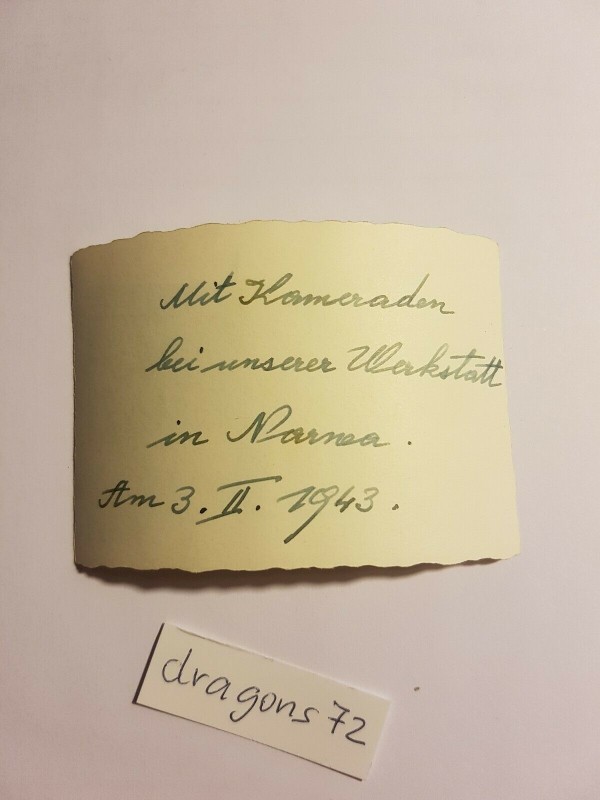 Mit Kameraden
bei unserer Werkstatt
in Narwa.
Am 3. II. 1943.
dragons72